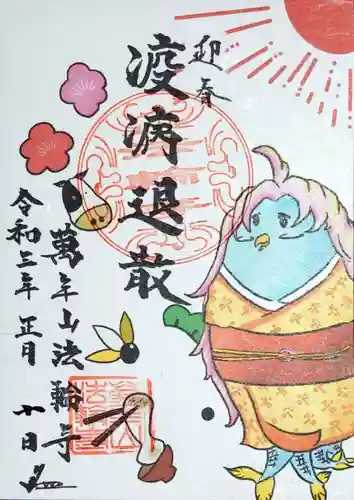 迎春
疫病退散
萬年山法輪寺
令和三年正月十日